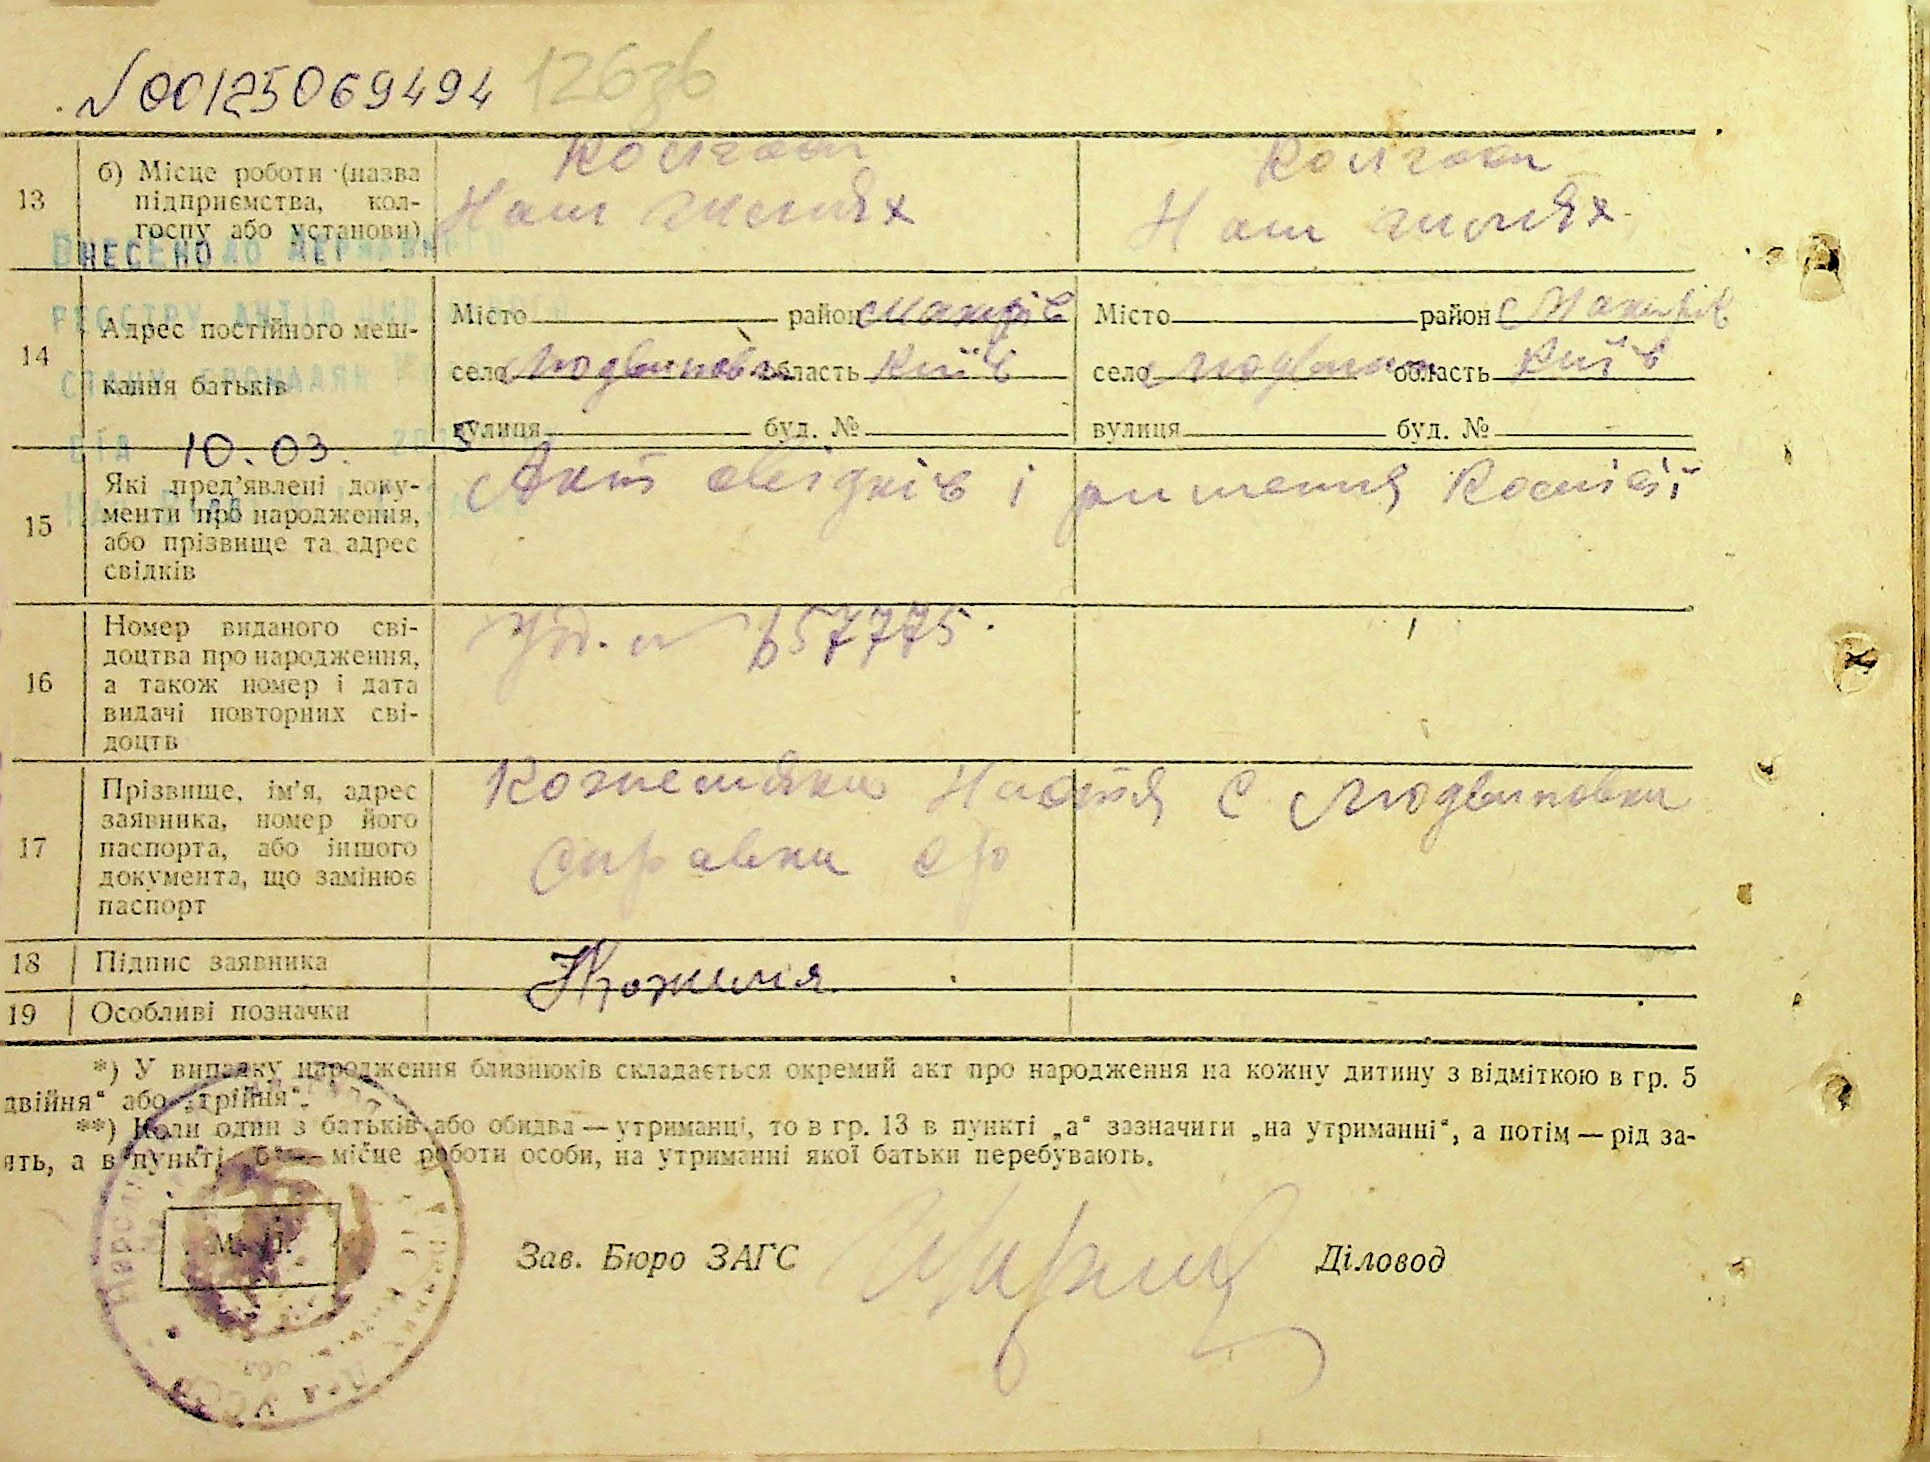 № 00125069494 1263б
13
б) Місце роботи (назва
підприємства, кол-
госпу або установи)
Колгосп
Наш шлях
Колгосп
Наш шлях
ВНЕСЕНО ДО ДЕРЖАВНОГО
РЕЄСТРУ АКТІВ
СТАНУ ГРОМАДЯН
від 10.03.
14
Адрес постійного меш-
кання батьків
Місто район Макарів
село Людвиновка область Київ
вулиця буд. №
Місто район Макарів
село Людвиновка область Київ
вулиця буд. №
15
Які пред’явлені доку-
менти про народження,
або прізвище та адрес
свідків
Акт свідків і рішення Комісії
16
Номер виданого сві-
доцтва про народження,
а також номер і дата
видачі повторних сві-
доцтв
657775
17
Прізвище, ім’я, адрес
заявника, номер його
паспорта, або іншого
документа, що замінює
паспорт
Кожемяка Настя с Людвиновка
справка с/р
18
Підпис заявника
19
Особливі позначки
*) У випадку народження близнюків складається окремий акт про народження на кожну дитину з відміткою в гр. 5
двійня“ або „трійня“.
**) Коли один з батьків або обидва — утриманці, то в гр. 13 в пункті „а“ зазначити „на утриманні“, а потім — рід за-
ять, а в пункті „б“ — місце роботи особи, на утриманні якої батьки перебувають.
М. П.
Зав. Бюро ЗАГС
Діловод